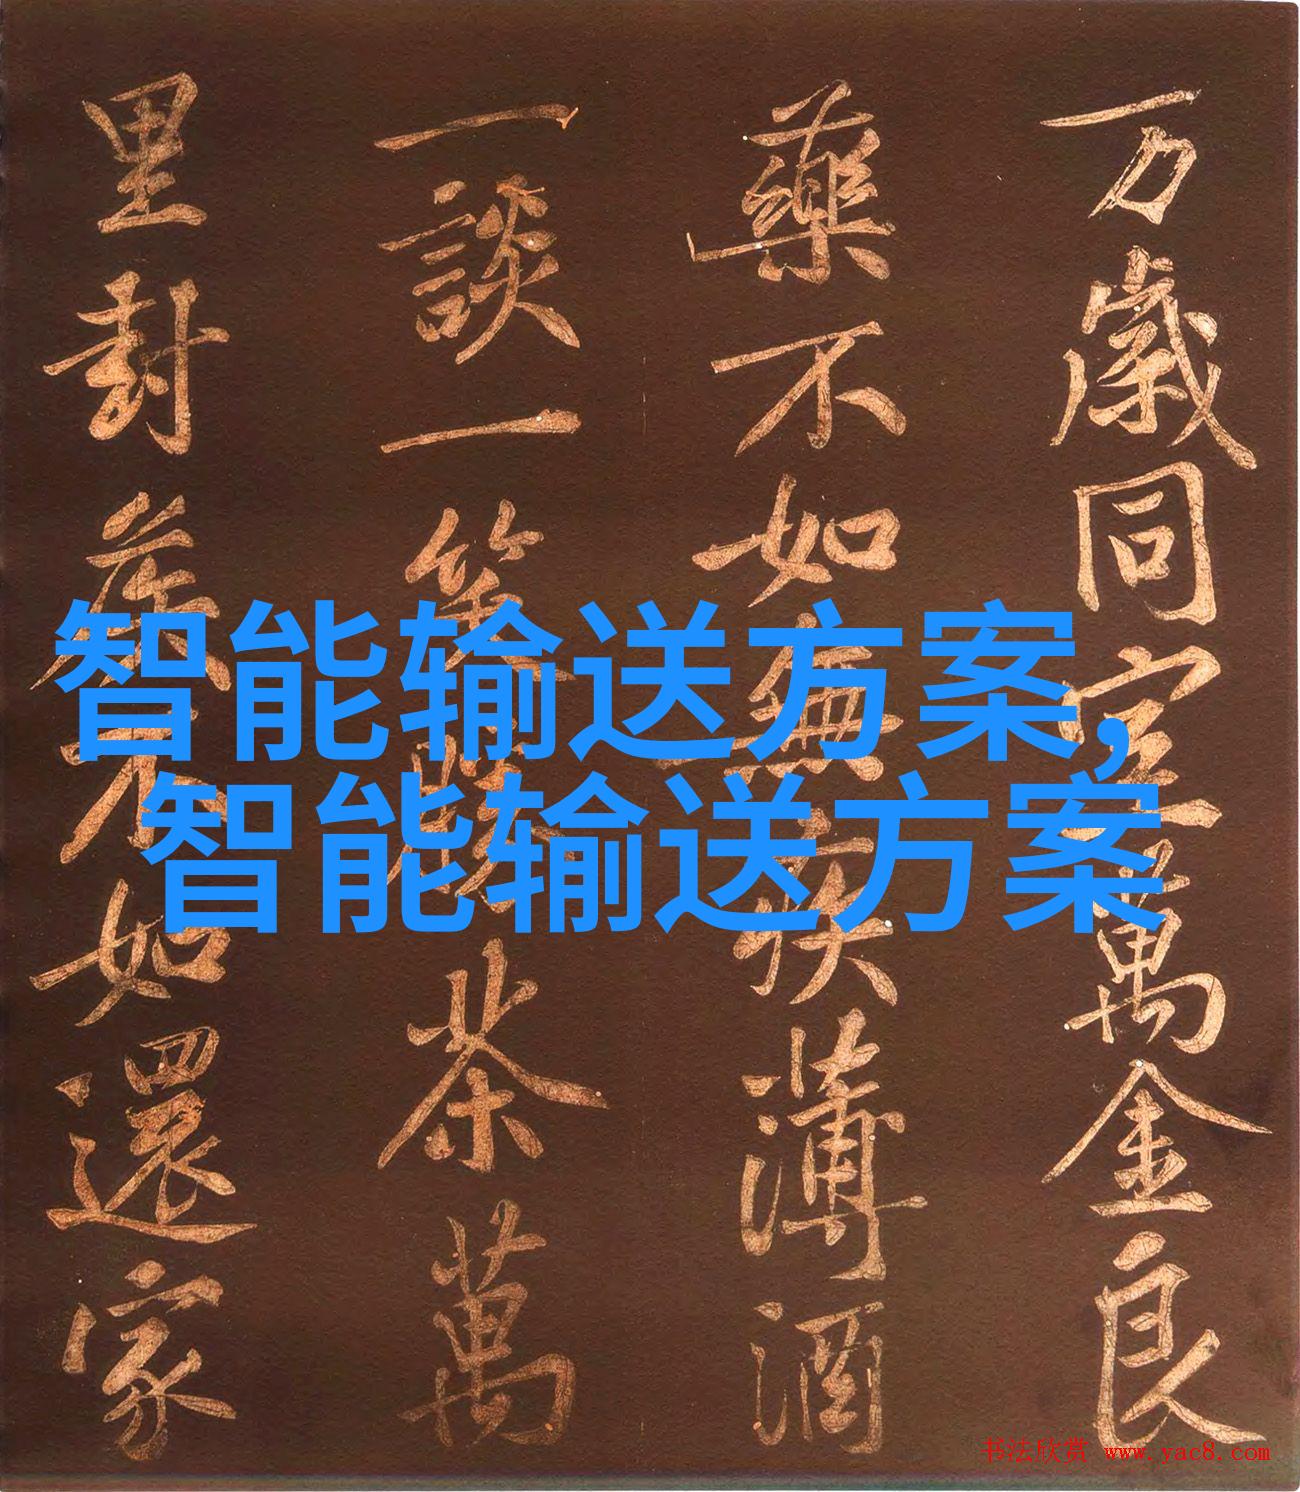 万歲同室萬金良
藥不如無疾薄酒
一談一笑勝茶萬
里封侯不如還家
智能输送方案,
智能输送方案
书法欣赏 www.yac8.com